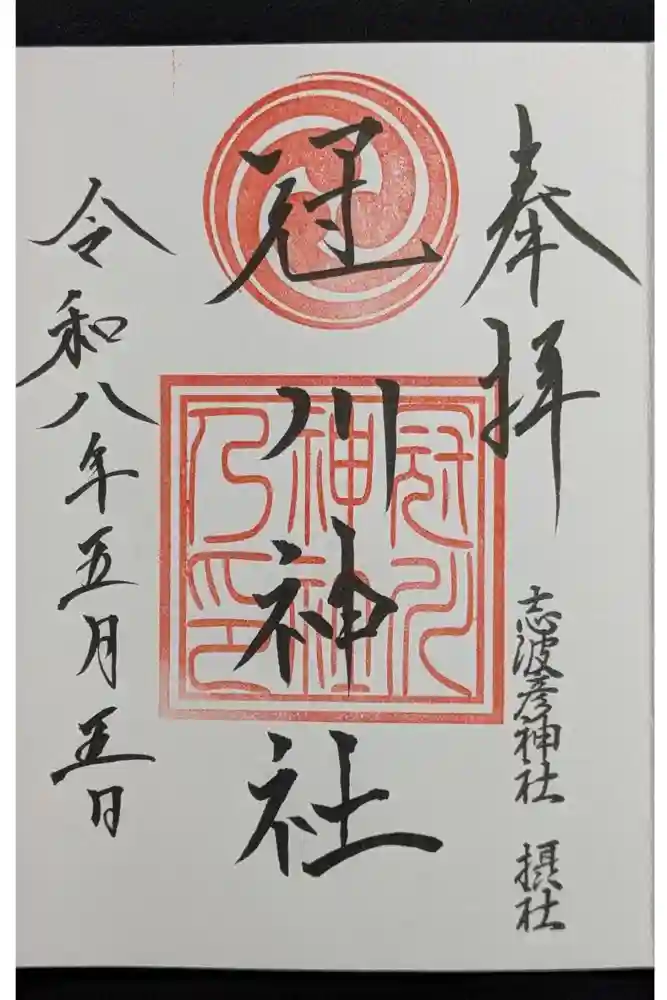 奉拝
志波彦神社 摂社
冠川神社
冠川
神社
乃印
令和八年五月五日